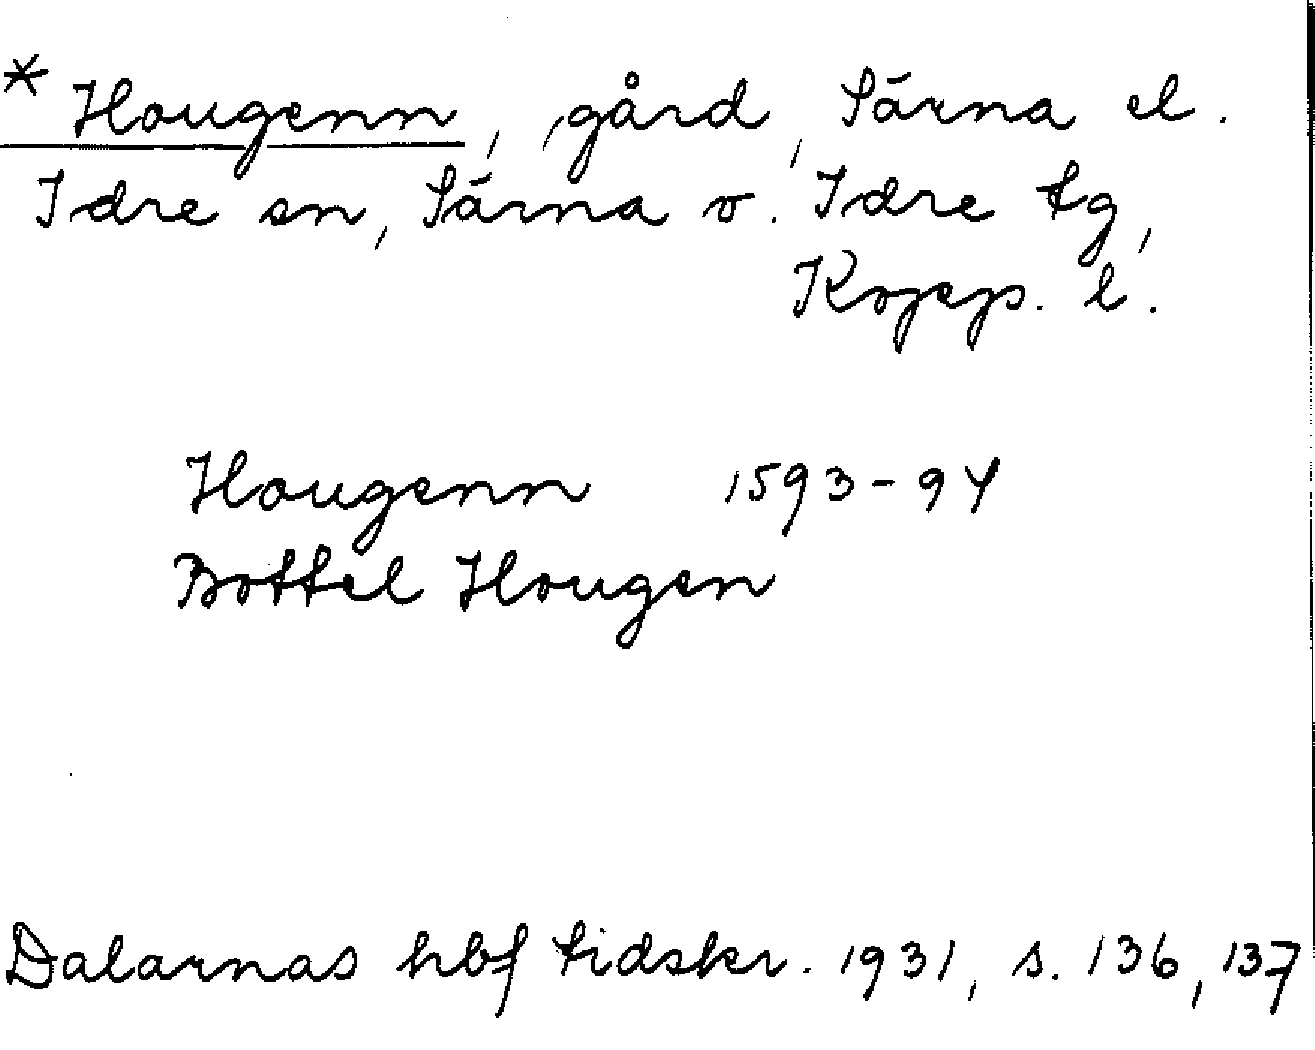 * Hougenn, gård, Särna el.
Idre sn, Särna o. Idre tg,
Kopp. l.
Hougenn 1593-94
Bottel Hougen
Dalarnas hbf tidskr. 1931, s. 136, 137